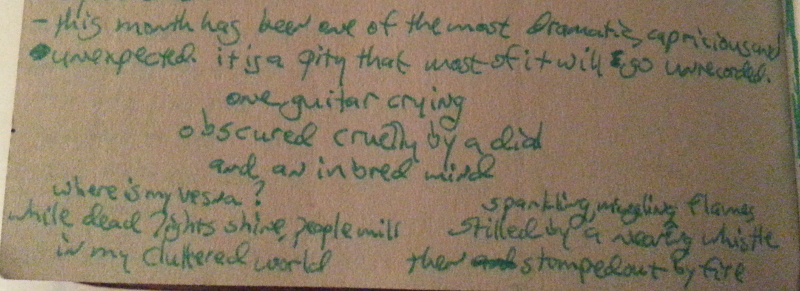 - this month has been one of the most dramatic, capricious and
unexpected. it is a pity that most of it will go unrecorded.
one guitar crying
obscured cruelly by a did
and an inbred mind
where is my vespa?
while dead lights shine, people mill
in my cluttered world
sparkling, wiggling flames
stilled by a nearing whistle
then stomped out by fire